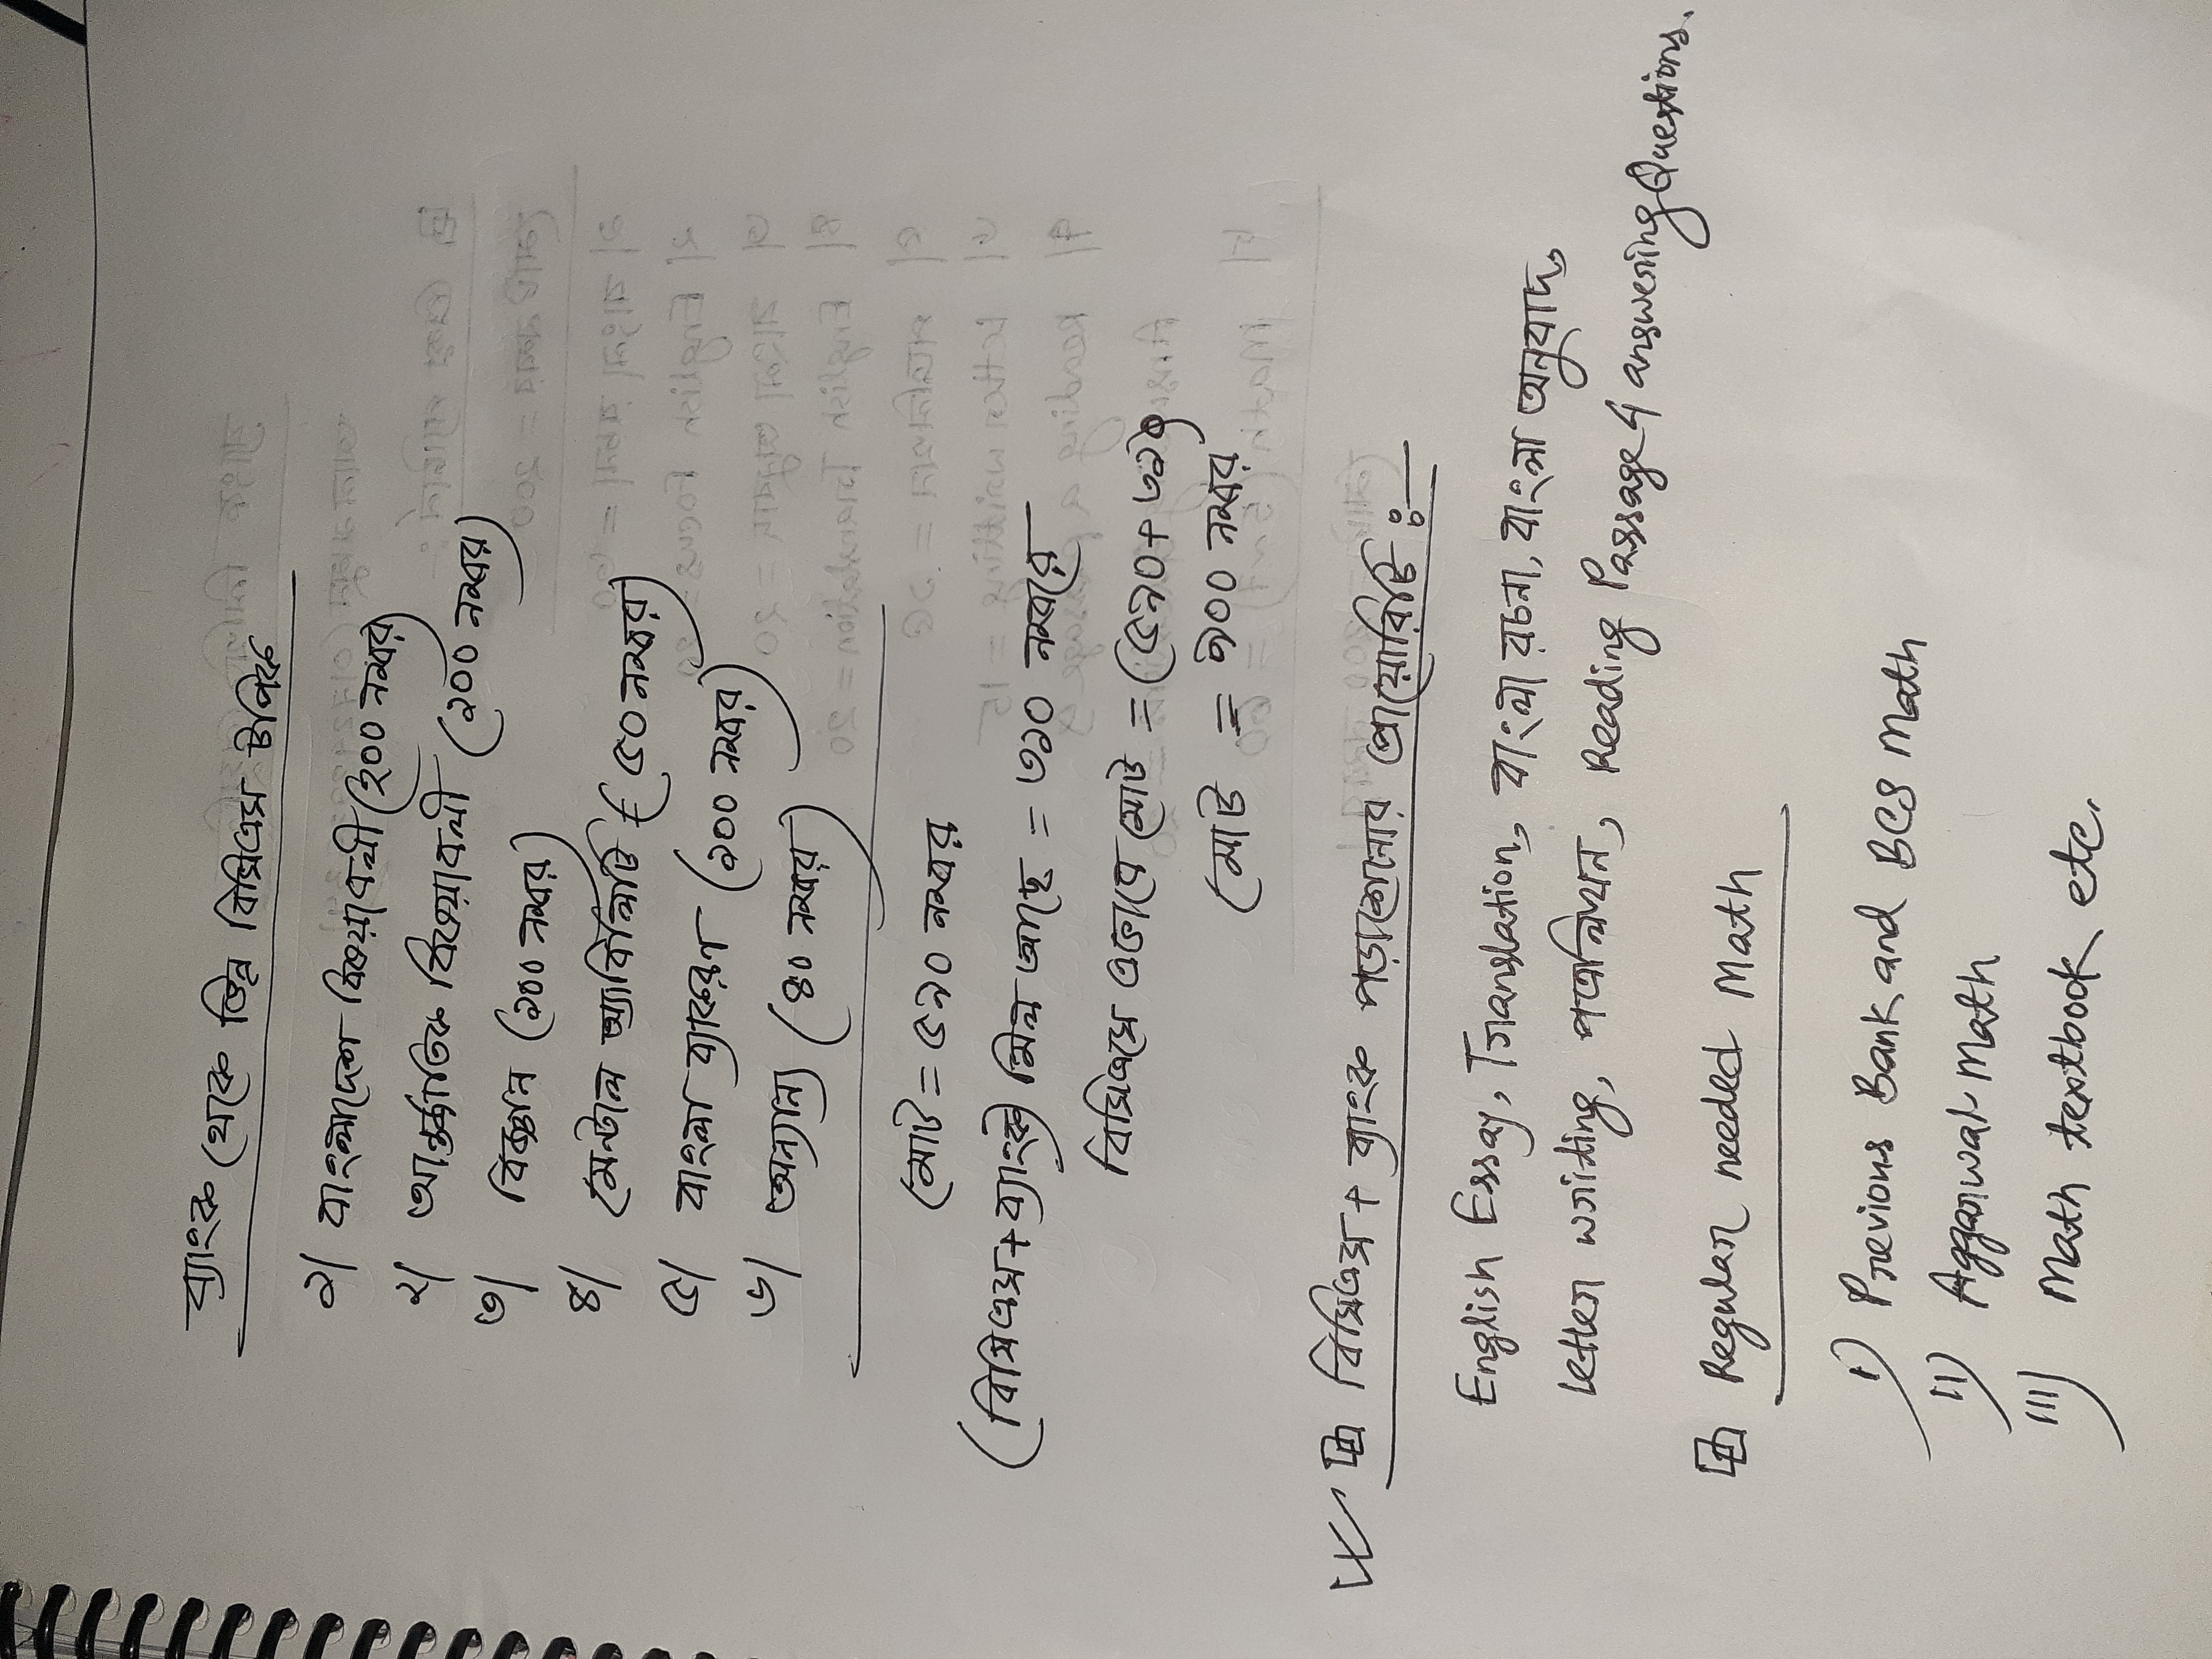 ব্যাংক থেকে ভিন্ন বিসিএস টপিক
১| বাংলাদেশ বিষয়াবলী (২০০ নম্বর)
২| আন্তর্জাতিক বিষয়াবলী (১০০ নম্বর)
৩| বিজ্ঞান (১০০ নম্বর)
৪| মেন্টাল অ্যাবিলিটি (৫০ নম্বর)
৫| বাংলা ব্যাকরণ (১০০ নম্বর)
৬| অন্যান্য (৪০ নম্বর)
মোট = ৫৯০ নম্বর
(বিসিএস + ব্যাংকে মিল আছে = ৩১০ নম্বরে
বিসিএসে এভাবে মোট = (৫৯০ + ৩১০)
মোট = ৯০০ নম্বর
বিসিএস + ব্যাংক পড়াশোনার প্রায়োরিটি :
English Essay, Translation, বাংলা রচনা, বাংলা অনুবাদ,
Letter writing, পত্রলিখন, Reading Passage & answering Questions.
Regular needed Math
i) Previous Bank and BCS Math
ii) Aggarwal Math
iii) Math textbook etc.